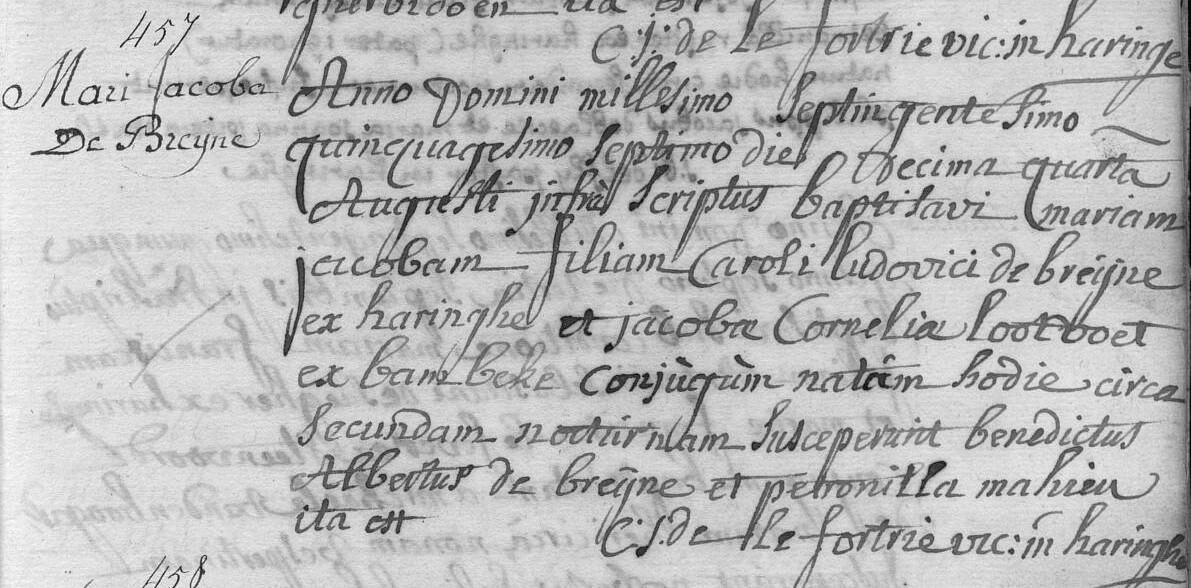 ita est
C: J: de le fortrie vic: in haringe
457
Mari Jacoba
De Breÿne
Anno Domini millesimo septingentesimo
quinquagesimo septimo die decima quarta
Augusti infrà scriptus baptisavi mariam
jacobam filiam Caroli ludovici de breÿne
ex haringhe et jacobæ Corneliæ lootvoet
ex bambeke conjùgùm natàm hodie circa
secundam nocturnam susceperunt benedictus
Albertus de breÿne et petronilla mahieu
ita est C: J: de le fortrie vic: in haringhe
458